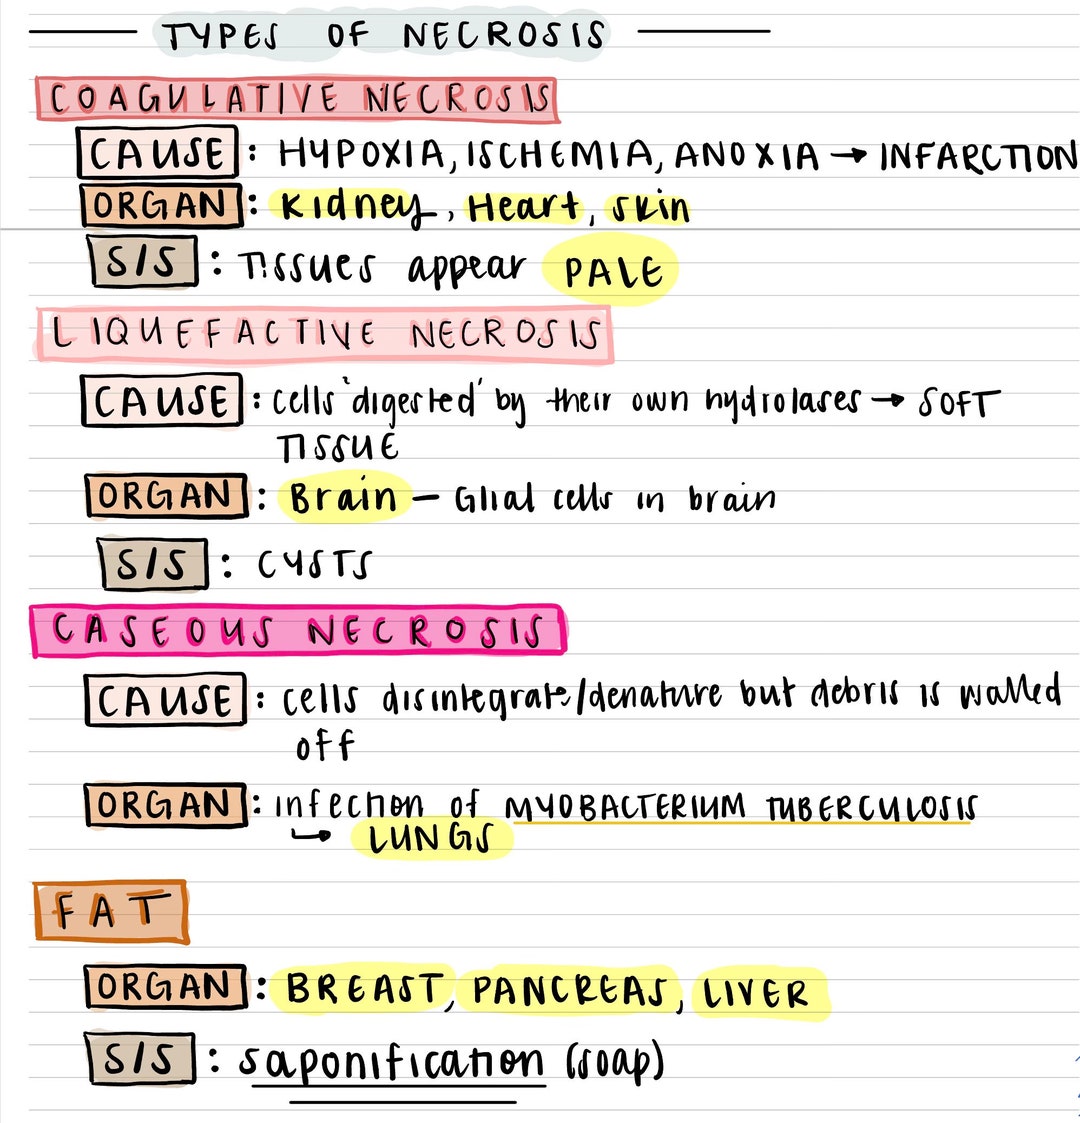 TYPES OF NECROSIS
COAGULATIVE NECROSIS
CAUSE: HYPOXIA, ISCHEMIA, ANOXIA → INFARCTION
ORGAN: Kidney, Heart, Skin
S/S: TISSUES appear PALE
LIQUEFACTIVE NECROSIS
CAUSE: Cells 'digested' by their own hydrolases → SOFT
TISSUE
ORGAN: Brain – Glial cells in brain
S/S: CYSTS
CASEOUS NECROSIS
CAUSE: cells disintegrate/denature but debris is walled
off
ORGAN: infection of MYOBACTERIUM TUBERCULOSIS
↳ LUNGS
FAT
ORGAN: BREAST, PANCREAS, LIVER
S/S: saponification (soap)